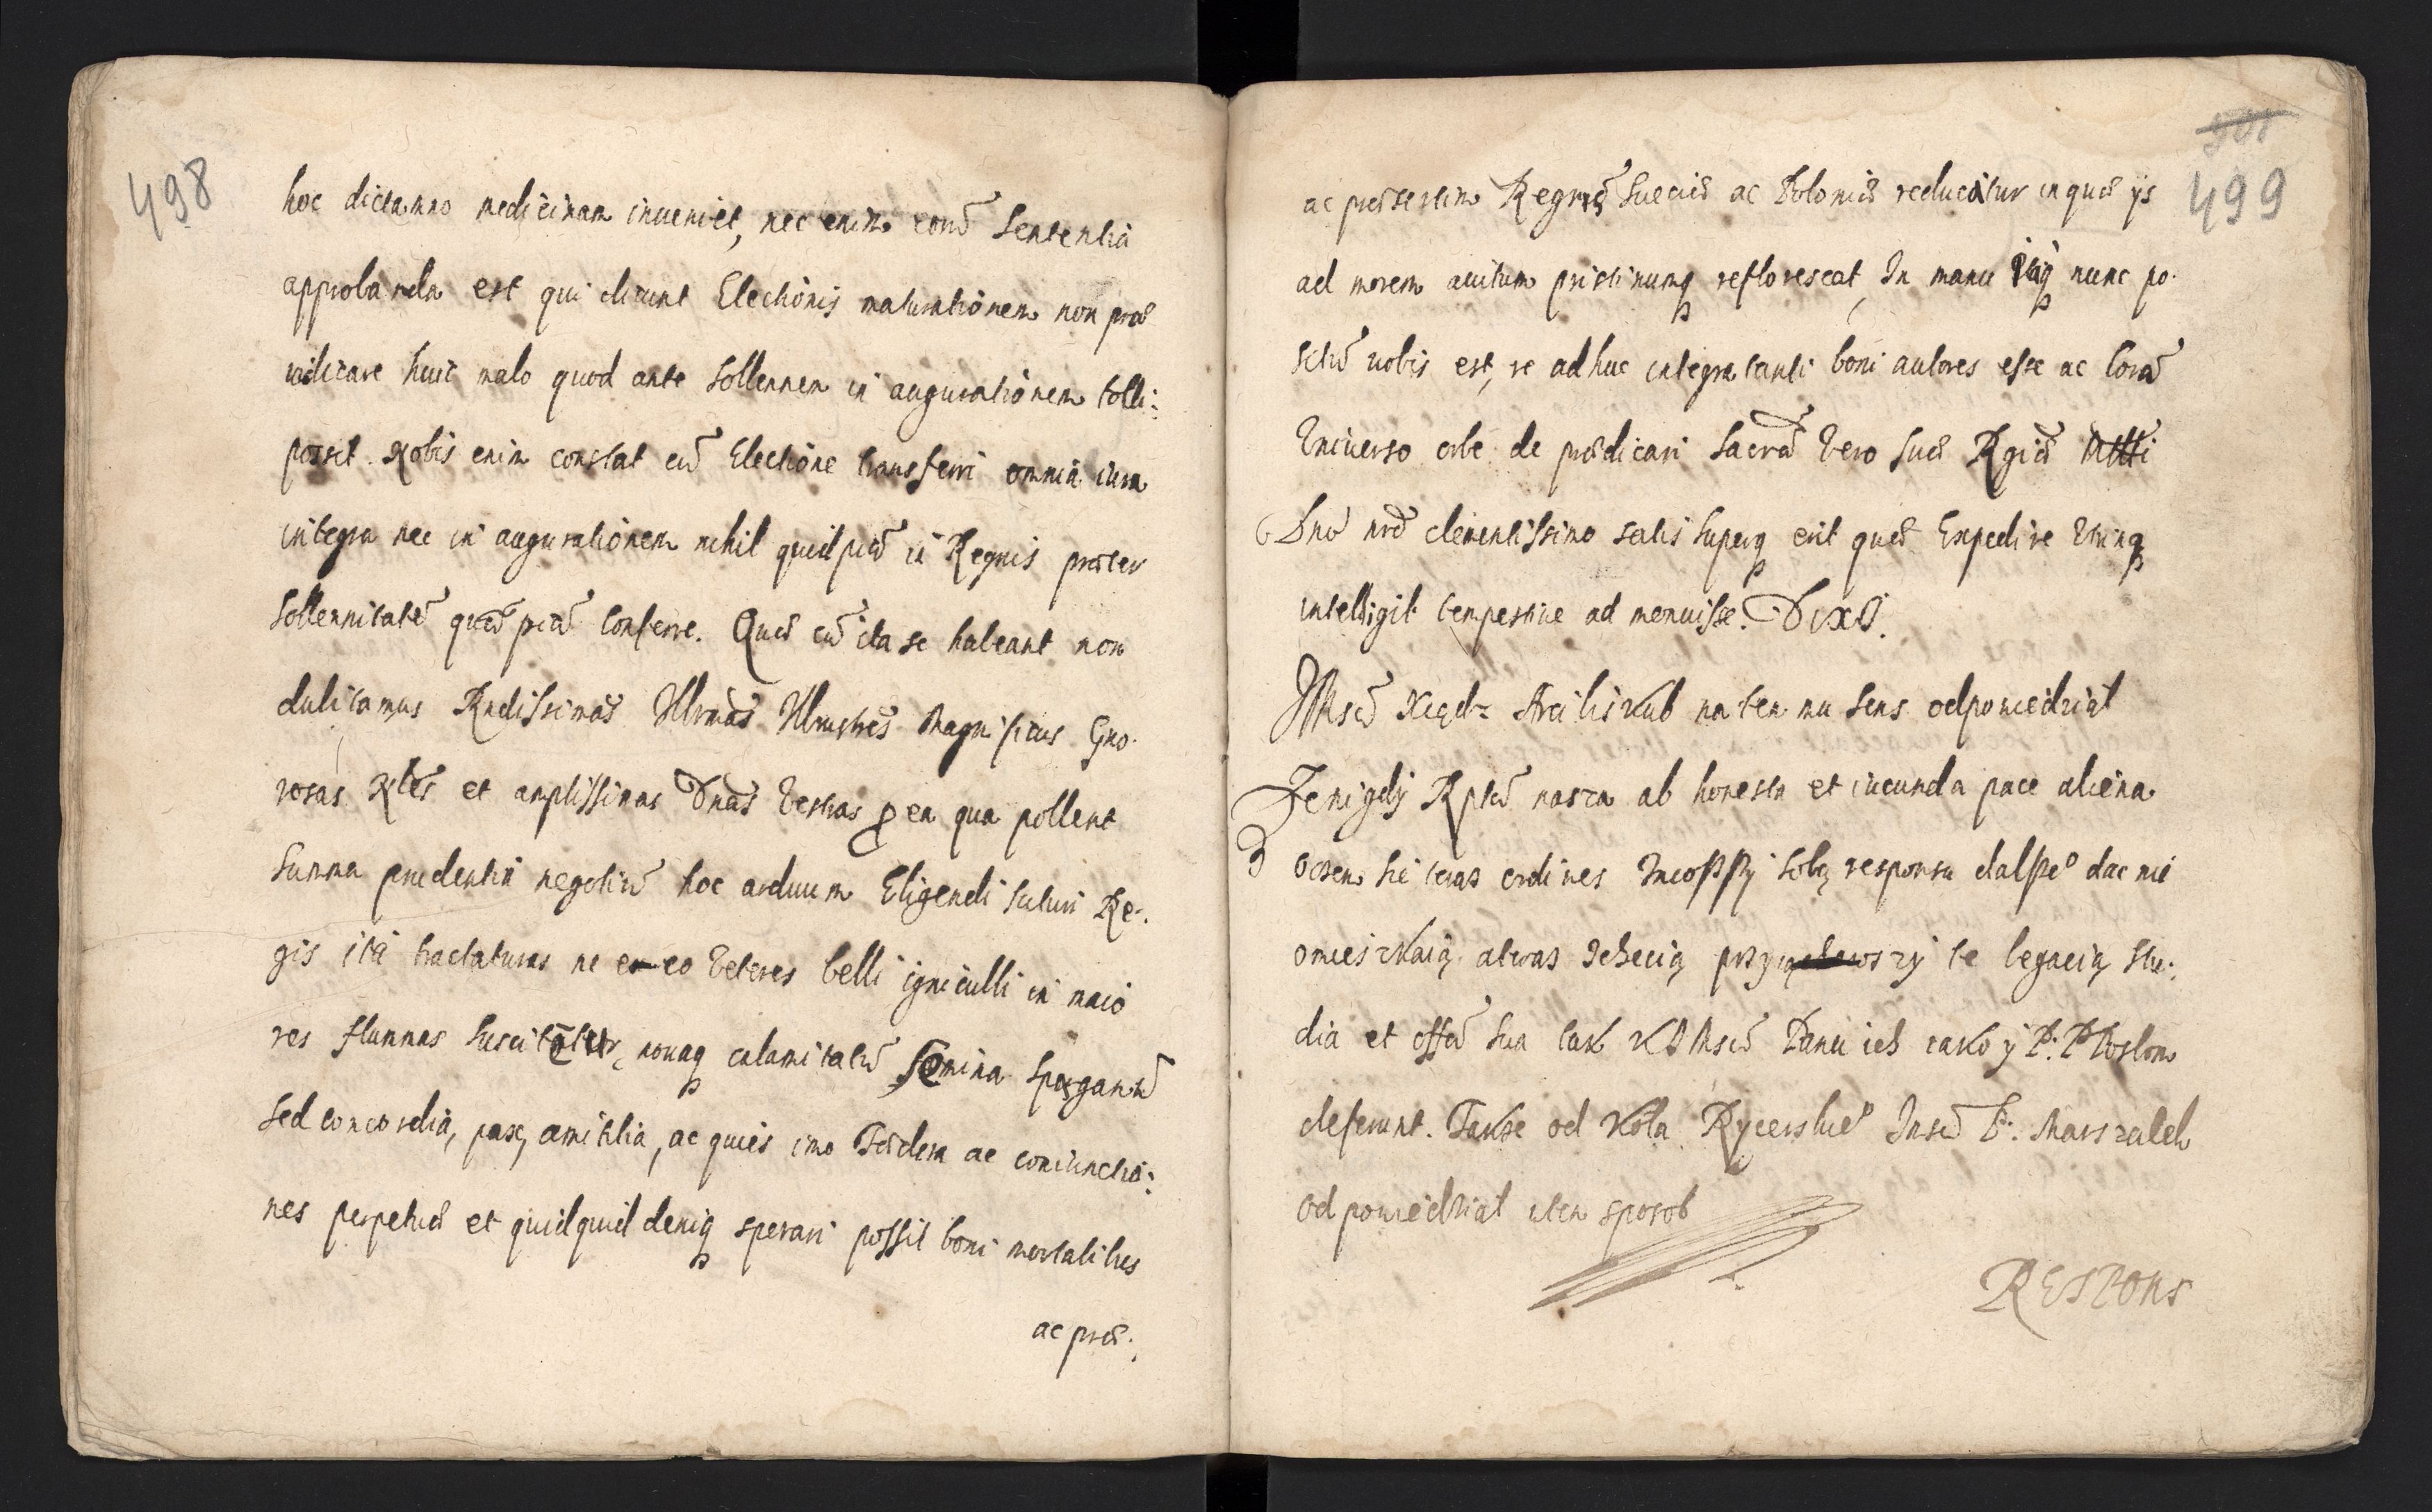 498
hoc dictamno medicinam inueniet, nec enim eorũ Sententia
approbanda est qui dicunt Electionis maturationem non præ
iudicare huic malo quod ante Sollennem in augurationem tolli:
possit. Nobis enim constat cũ Electione transferri omnia iura
integra nec in augurationem nihil quidpiã in Regnis præter
Sollennitatẽ quãpiã conferre. Quæ cũ ita se habeant non
dubitamus Rndissimas Illrmas Illustres Magnificas Gno.
rosas Nles et amplissimas Dnães Vestras p ea qua pollent
Summa prudentia negotiũ hoc arduum Eligendi futuri Re.
gis ita tractaturas ne ex eo Veteres belli igniculli in maio
res flammas suscitẽtur, nouaq calamitatũ Semina spargantũ
Sed concordia, pax, amicitia, ac quies imo Fædera ac coniunctio:
nes perpetuæ et quidquid deniq sperari possit boni mortalibus
ac præ.
501
499
ac præsertim Regnis Sueciæ ac Poloniæ reducatur inquæ ys
ad morem auitum pristinumq reflorescat, In manu itaq nunc po.
sitũ uobis est, re adhuc integra tanti boni autores esse ac corã
Vniuerso orbe de prædicari Sacræ Vero Suæ Rgiæ Mtti
Dno nro clementissimo satis superq erit quæ Expedire Vtrinq
intelligit tempestiue ad monuisse. DIXI.
JMsc Xiądz Arcibiskub na ten mu sens odpowiedział
Jenigdy Rpta nasza ab honesta et iucunda pace aliena
oczem sie teraz ordines zniosszy sobą responsu dalsze° dac nie
omieszkaią. ateraz zchecią przyiąwszy te legacią stu:
dia et offa sua tak KJMsci Panu ich iako y P. P Posłom
deferunt. Takze od Koła Rycerskie° Jmsc P: Marszałek
odpowiedział wten sposob
RESPONS